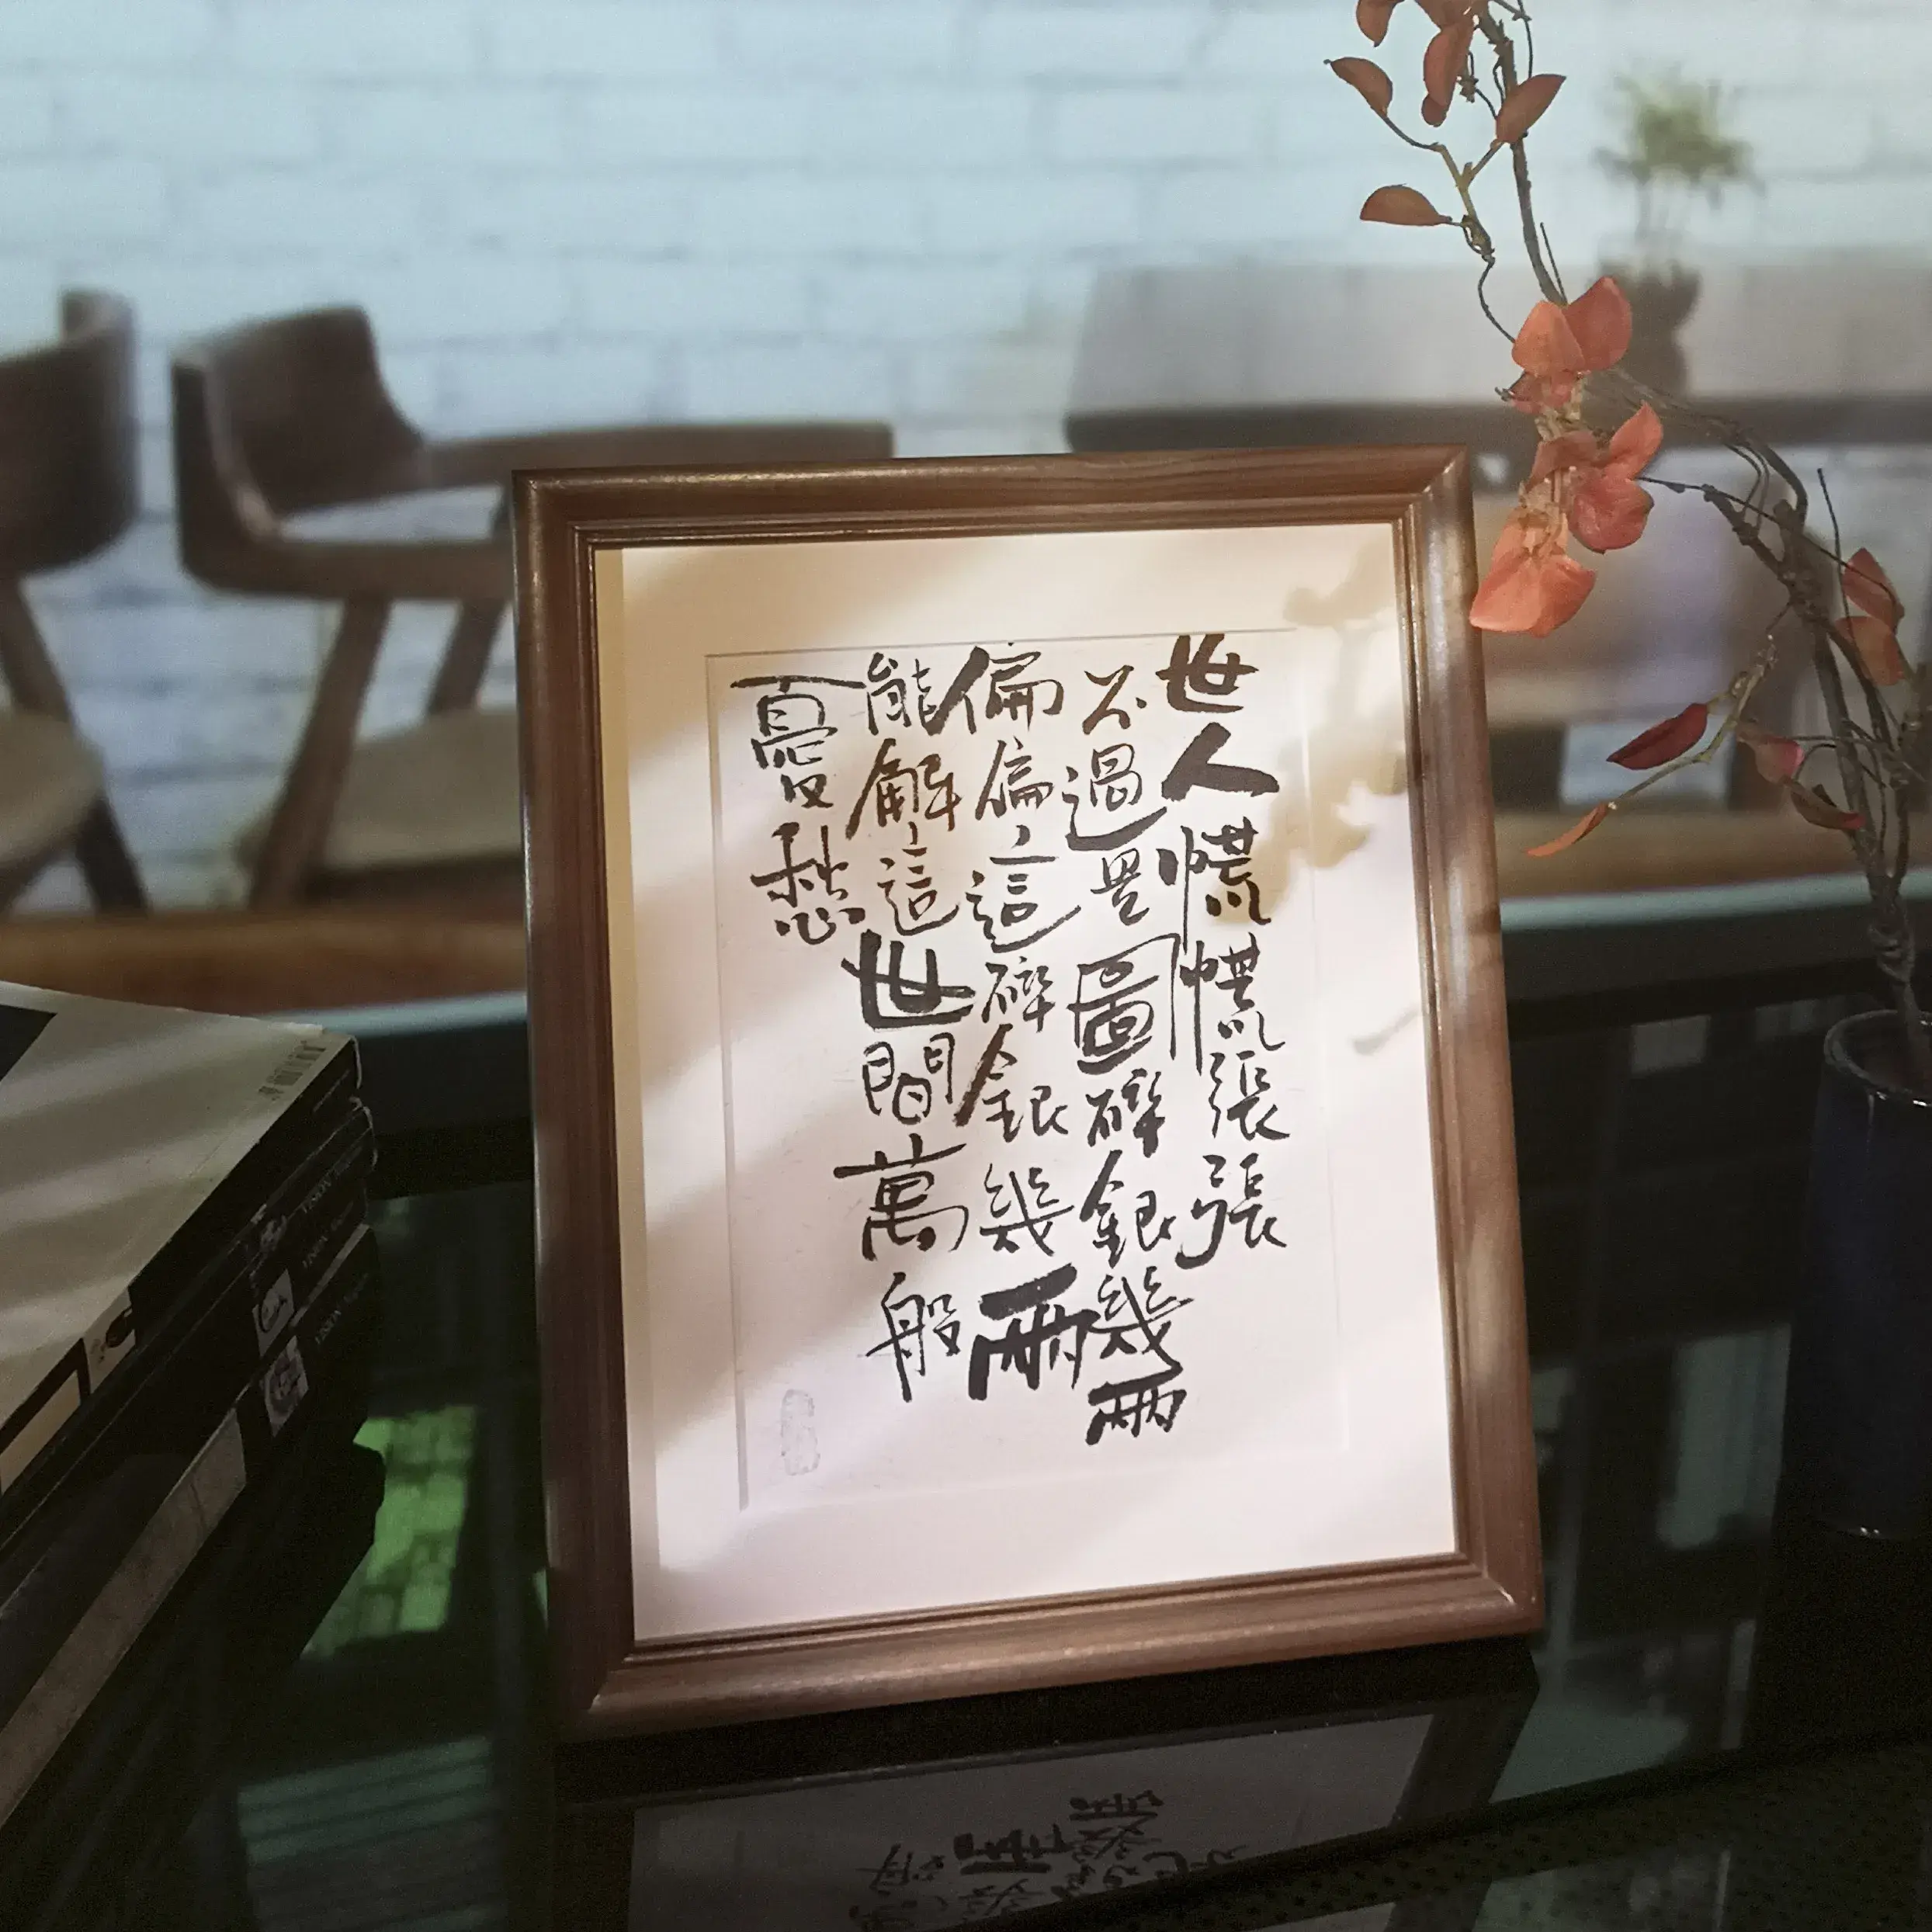 世人慌慌張張
不過是圖碎銀幾兩
偏偏這碎銀幾兩
能解這世間萬般
憂愁
VISION
VISION
VISION